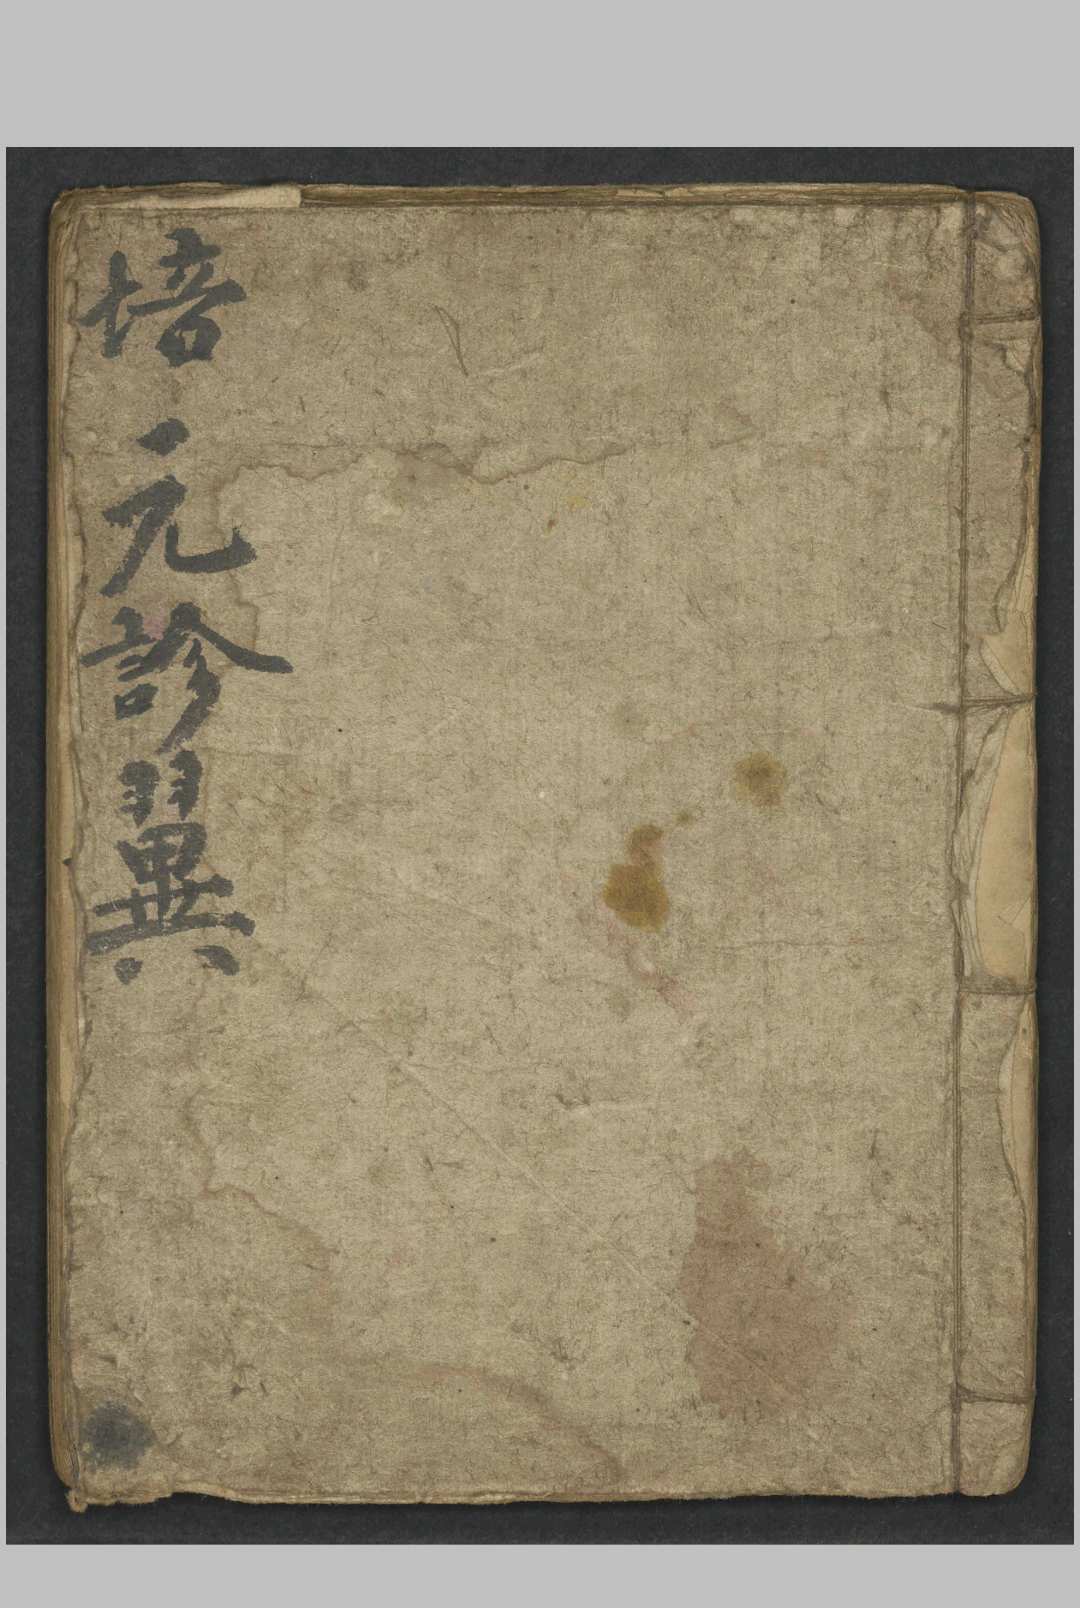 培元診翼